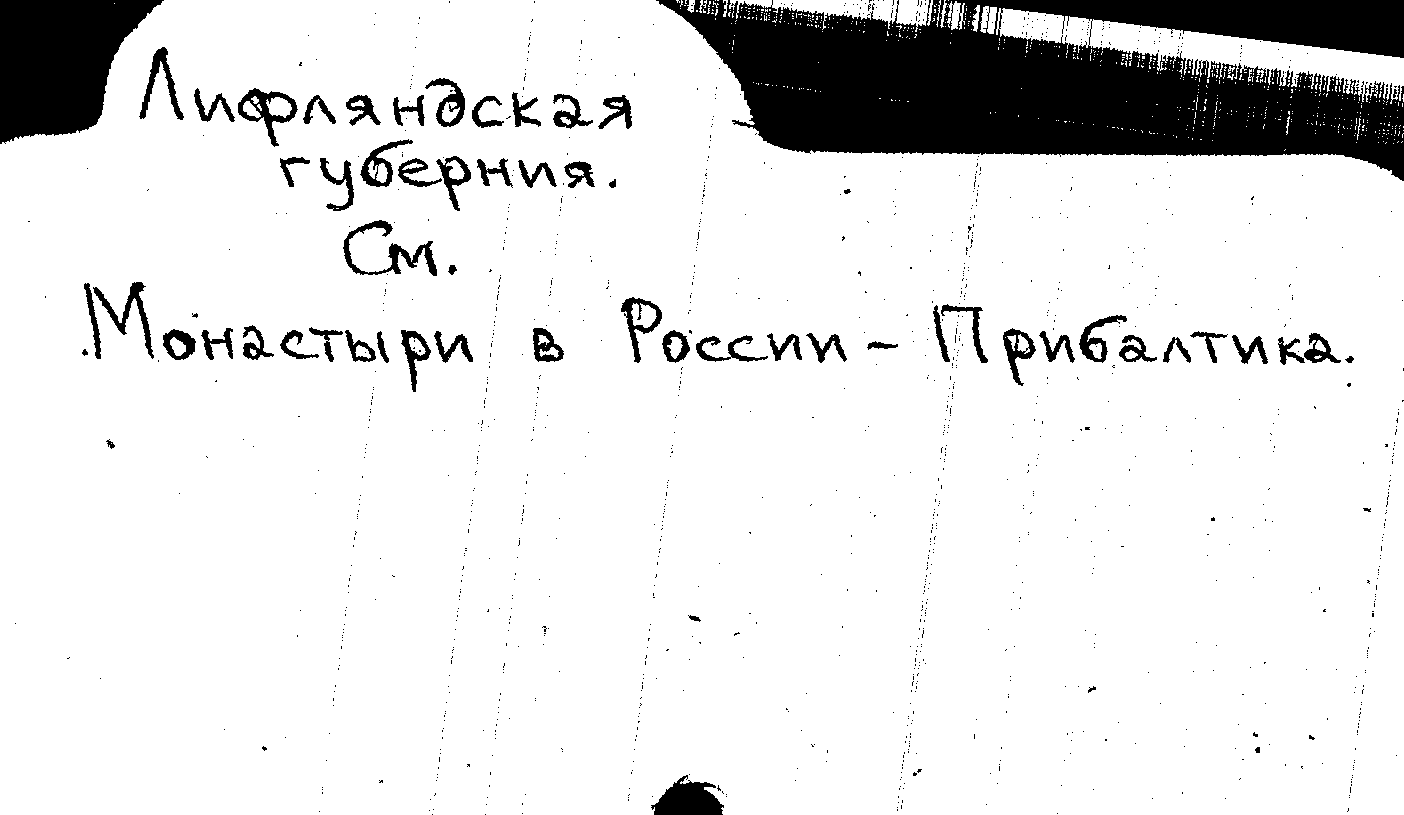 Лифляндская
губерния.
См.
Монастыри в России - Прибалтика.